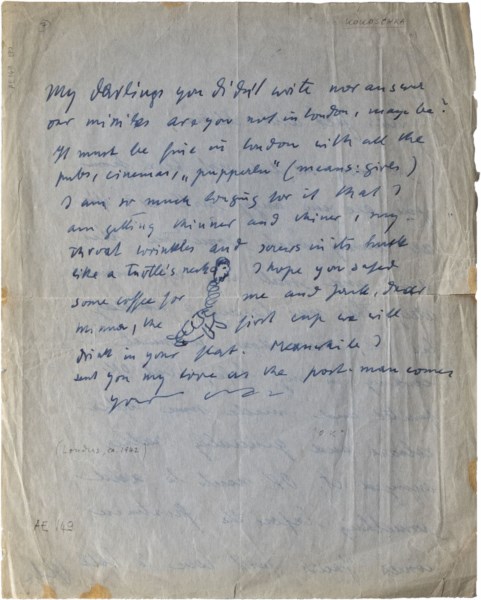 KOKOSCHKA
My darlings you didn't write nor answer
our missiles are you not in london, maybe?
It must be fine in london with all the
pubs, cinemas, „pupperln" (means: girls)
I am so much longing for it that I
am getting thinner and thiner, my
throat wrinkles and screws in its husk
like a turtle's neck I hope you safed
some coffee for me and Jack, dear
minna, the first cup we will
drick in your flat. Meanwhile I
sent you my love as the post-man comes
your
(Londres, ca. 1942)
AE 143